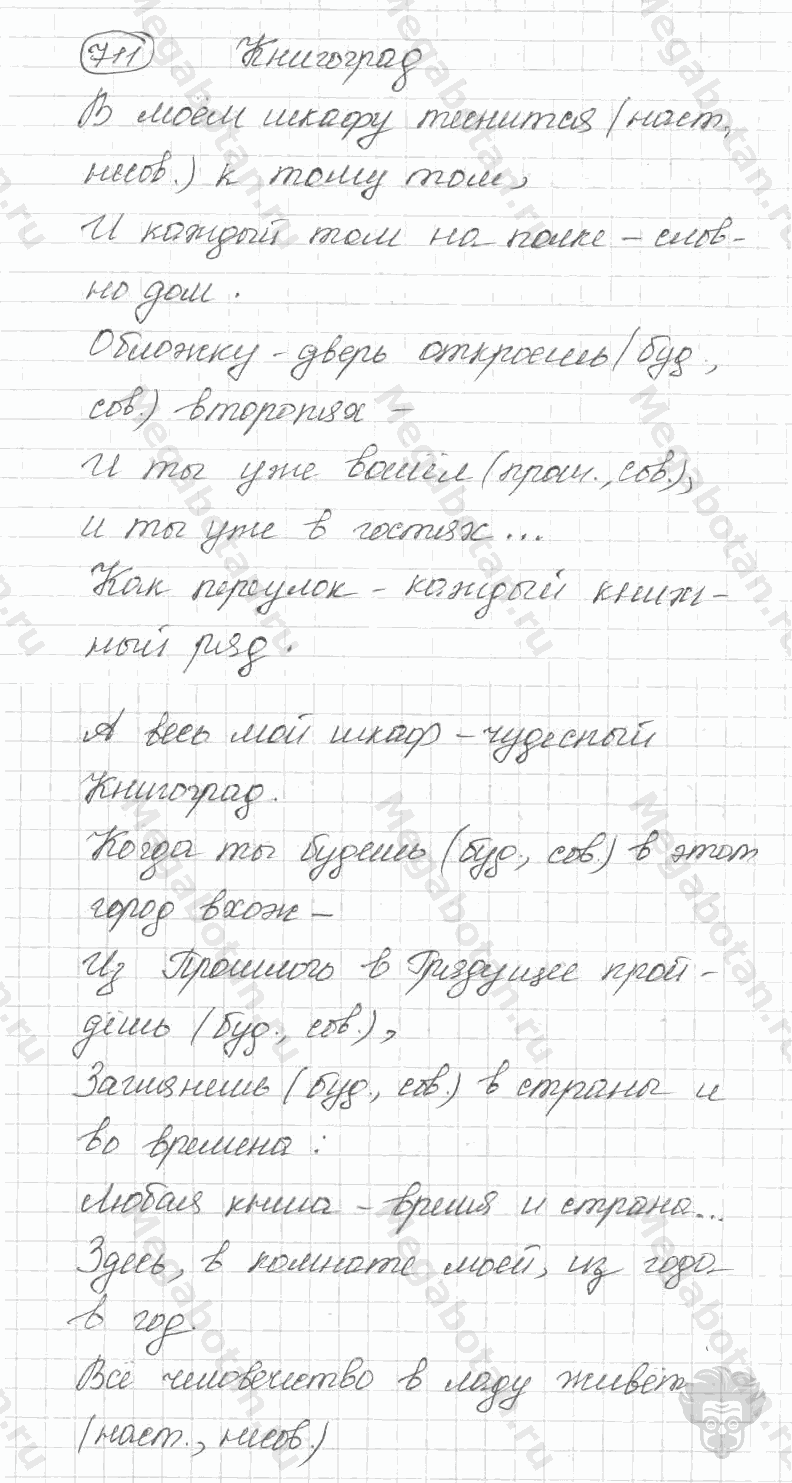 711 Книгоград
В моём шкафу теснится (наст.,
несов.) к тому том,
И каждый том на полке – слов-
но дом.
Обложку - дверь откроешь (буд.,
сов.) второпях –
И ты уже вошёл (прош., сов.),
и ты уже в гостях...
Как переулок - каждый книж-
ный ряд.
А весь мой шкаф – чудесный
Книгоград.
Когда ты будешь (буд., сов.) в этот
город вхож –
Из Прошлого в Грядущее прой-
дёшь (буд., сов.),
Заглянешь (буд., сов.) в страны и
во времена:
Любая книга – время и страна...
Здесь, в комнате моей, из года
в год.
Всё человечество в ладу живёт
(наст., несов.)
Megabotan.ru